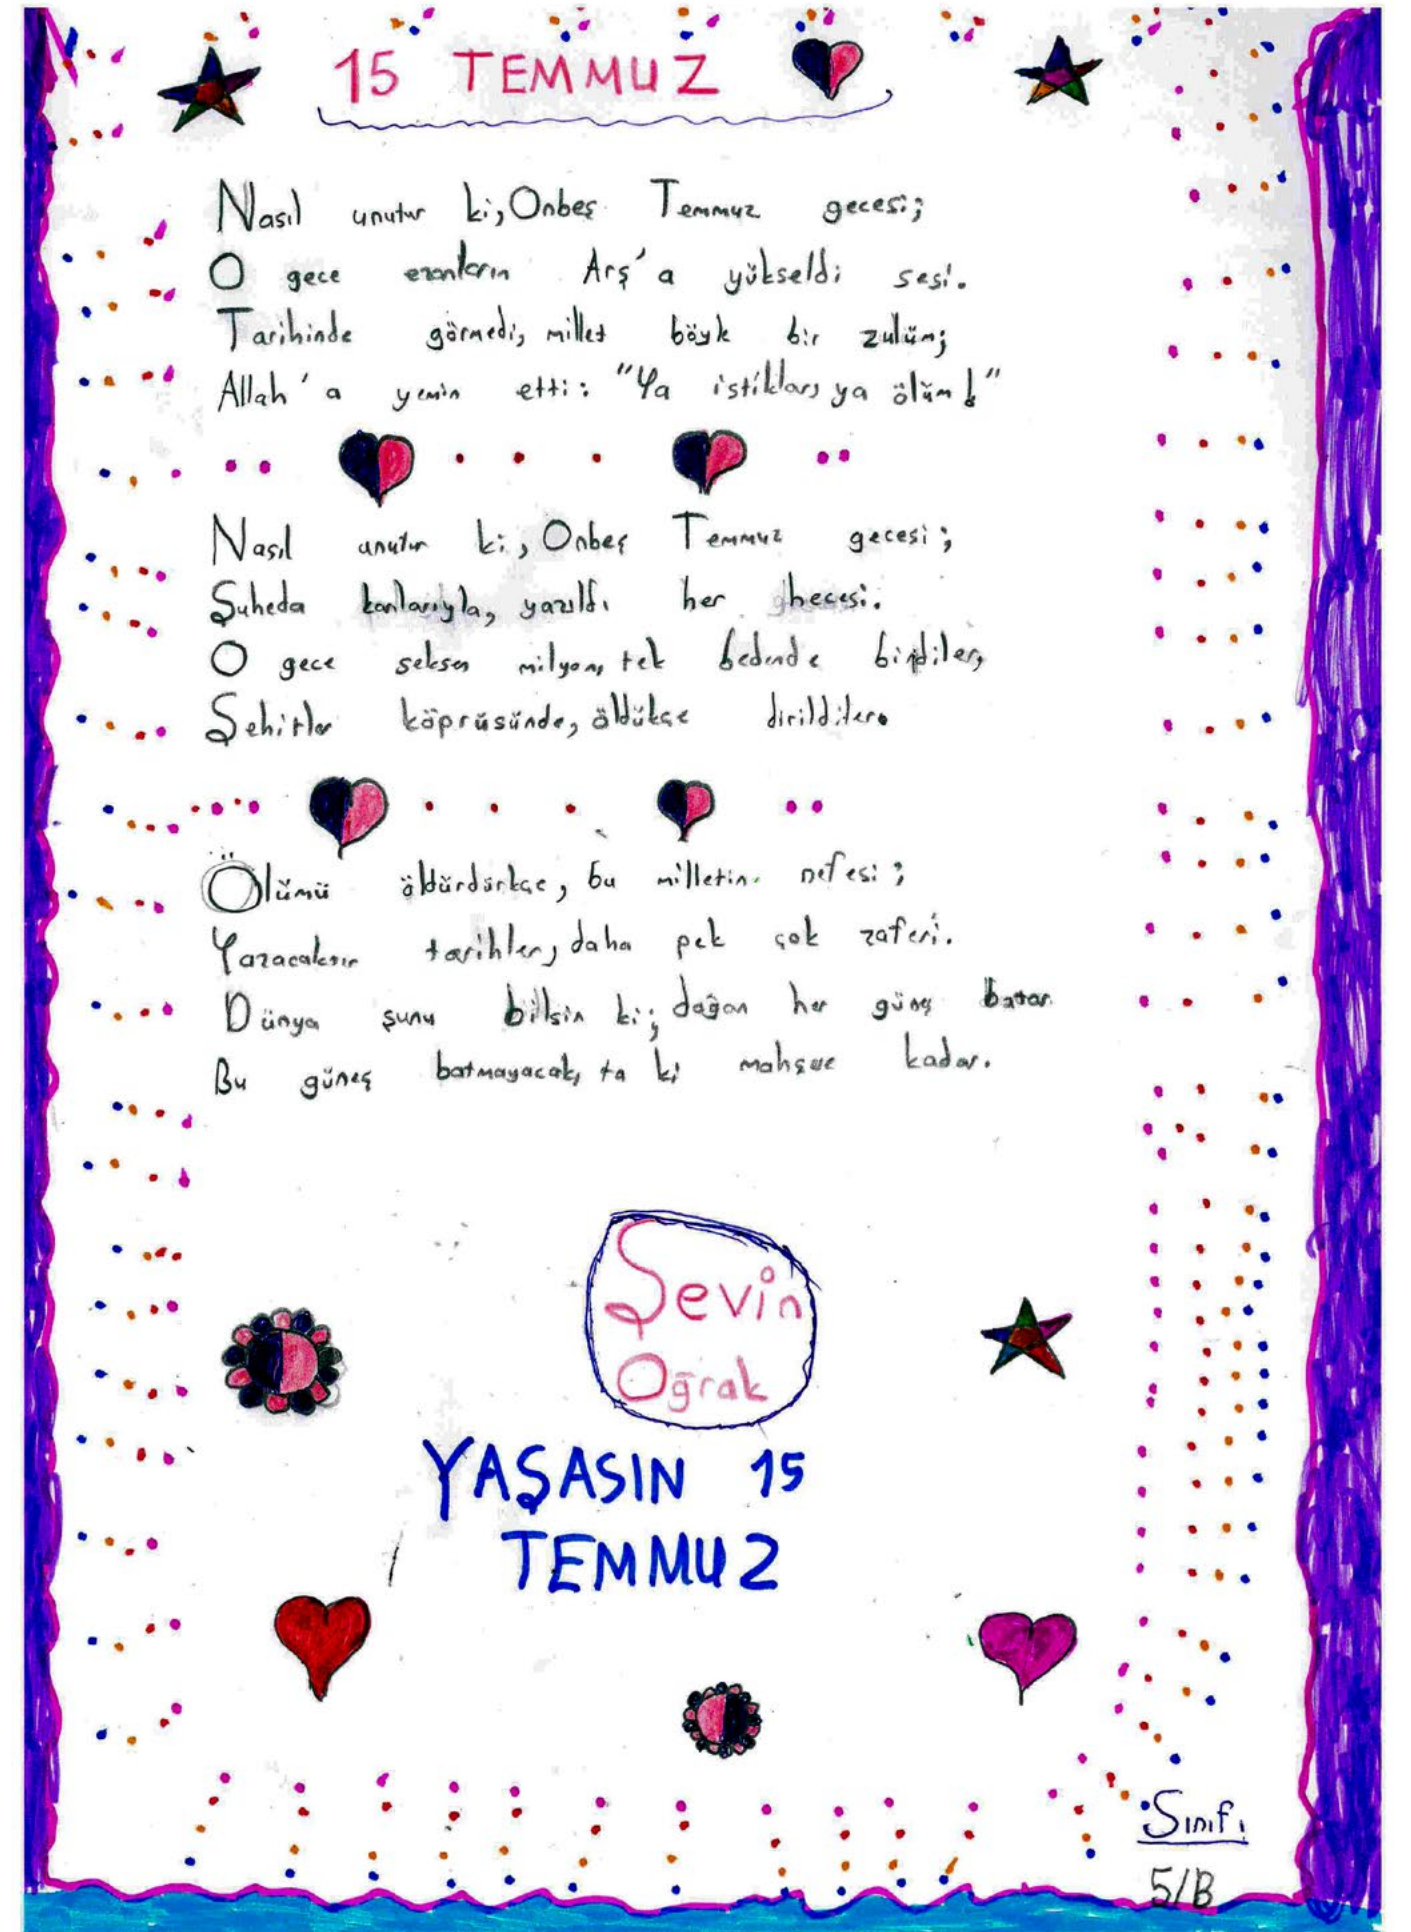 15 TEMMUZ
Nasıl unutur ki, Onbeş Temmuz gecesi;
O gece ezanların Arş'a yükseldi sesi.
Tarihinde görmedi, millet böyk bir zulüm;
Allah'a yemin etti: "Ya istiklar, ya ölüm!"
Nasıl unutur ki, Onbeş Temmuz gecesi;
Şuheda kanlarıyla, yazıldı her hecesi.
O gece seksen milyon, tek bedende birdiler,
Şehitler köprüsünde, öldükçe dirildiler.
Ölümü öldürdürkçe, bu milletin nefesi;
Yazacaktır tarihler, daha pek çok zaferi.
Dünya şunu bilsin ki; doğan her güneş batar
Bu güneş batmayacak, ta ki mahşere kadar.
Şevin
Oğrak
YAŞASIN 15
TEMMUZ
Sınıfı
5/B